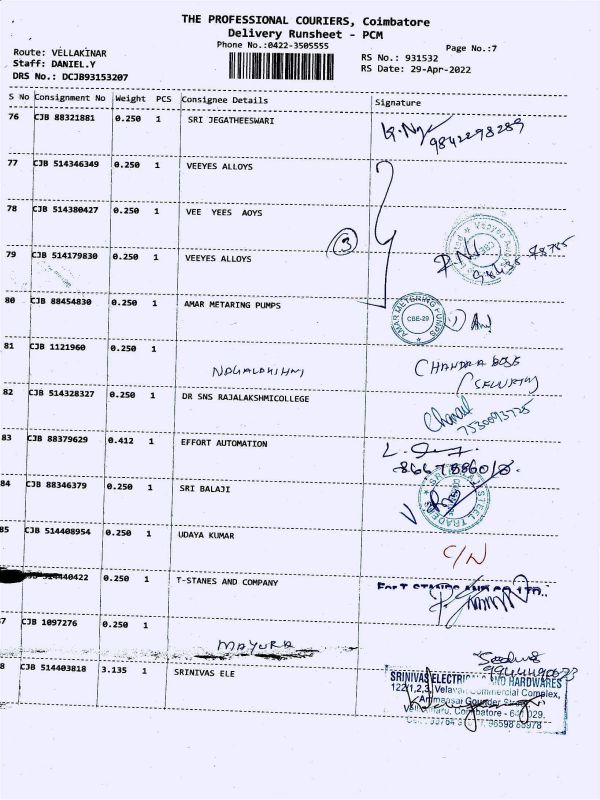 THE PROFESSIONAL COURIERS, Coimbatore
Delivery Runsheet - PCM
Phone No.:0422-3505555
Page No.:7
Route: VELLAKINAR
Staff: DANIEL.Y
DRS No.: DCJB93153207
RS No.: 931532
RS Date: 29-Apr-2022
S No Consignment No Weight PCS Consignee Details Signature
76 CJB 88321881 0.250 1 SRI JEGATHEESWARI
9842298289
77 CJB 514346349 0.250 1 VEEYES ALLOYS
78 CJB 514380427 0.250 1 VEE YEES AOYS
3
79 CJB 514179830 0.250 1 VEEYES ALLOYS
80 CJB 88454830 0.250 1 AMAR METARING PUMPS
AMAR METERING PUMPS
CBE-29
81 CJB 1121960 0.250 1
CHANDRA BOSE
82 CJB 514328327 0.250 1 DR SNS RAJALAKSHMICOLLEGE
7530093725
83 CJB 88379629 0.412 1 EFFORT AUTOMATION
84 CJB 88346379 0.250 1 SRI BALAJI
STEEL TRADERS
85 CJB 514408954 0.250 1 UDAYA KUMAR
C/N
514440422 0.250 1 T-STANES AND COMPANY
7 CJB 1097276 0.250 1
MAYURA
8 CJB 514403818 3.135 1 SRINIVAS ELE
SRINIVAS ELECTRIC AND HARDWARES
122/1,2,3, Velavan Commercial Complex,
Ammansai Gounder Street
Coimbatore - 641 029.